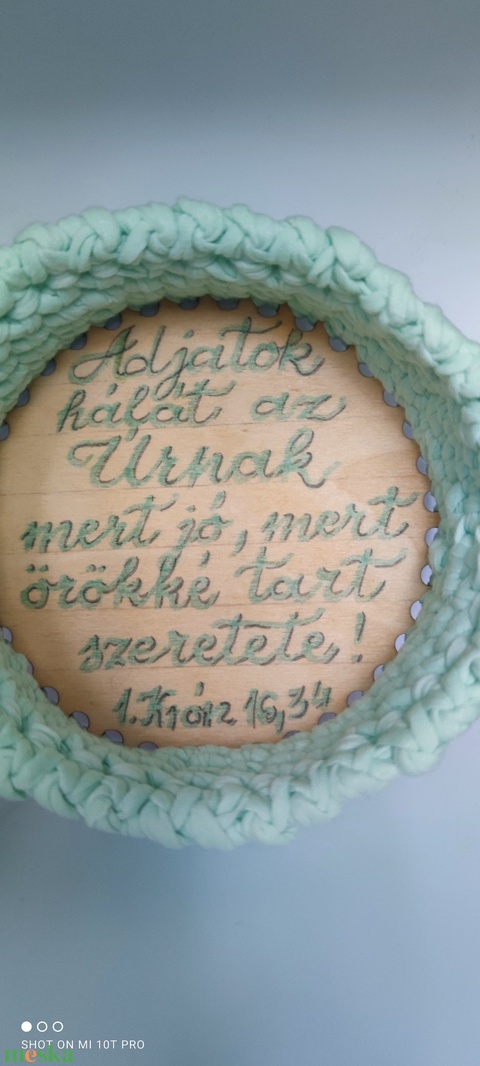 Adjatok
hálát az
Úrnak
mert jó, mert
örökké tart
szeretete!
1.Krón 16,34
SHOT ON MI 10T PRO
meska